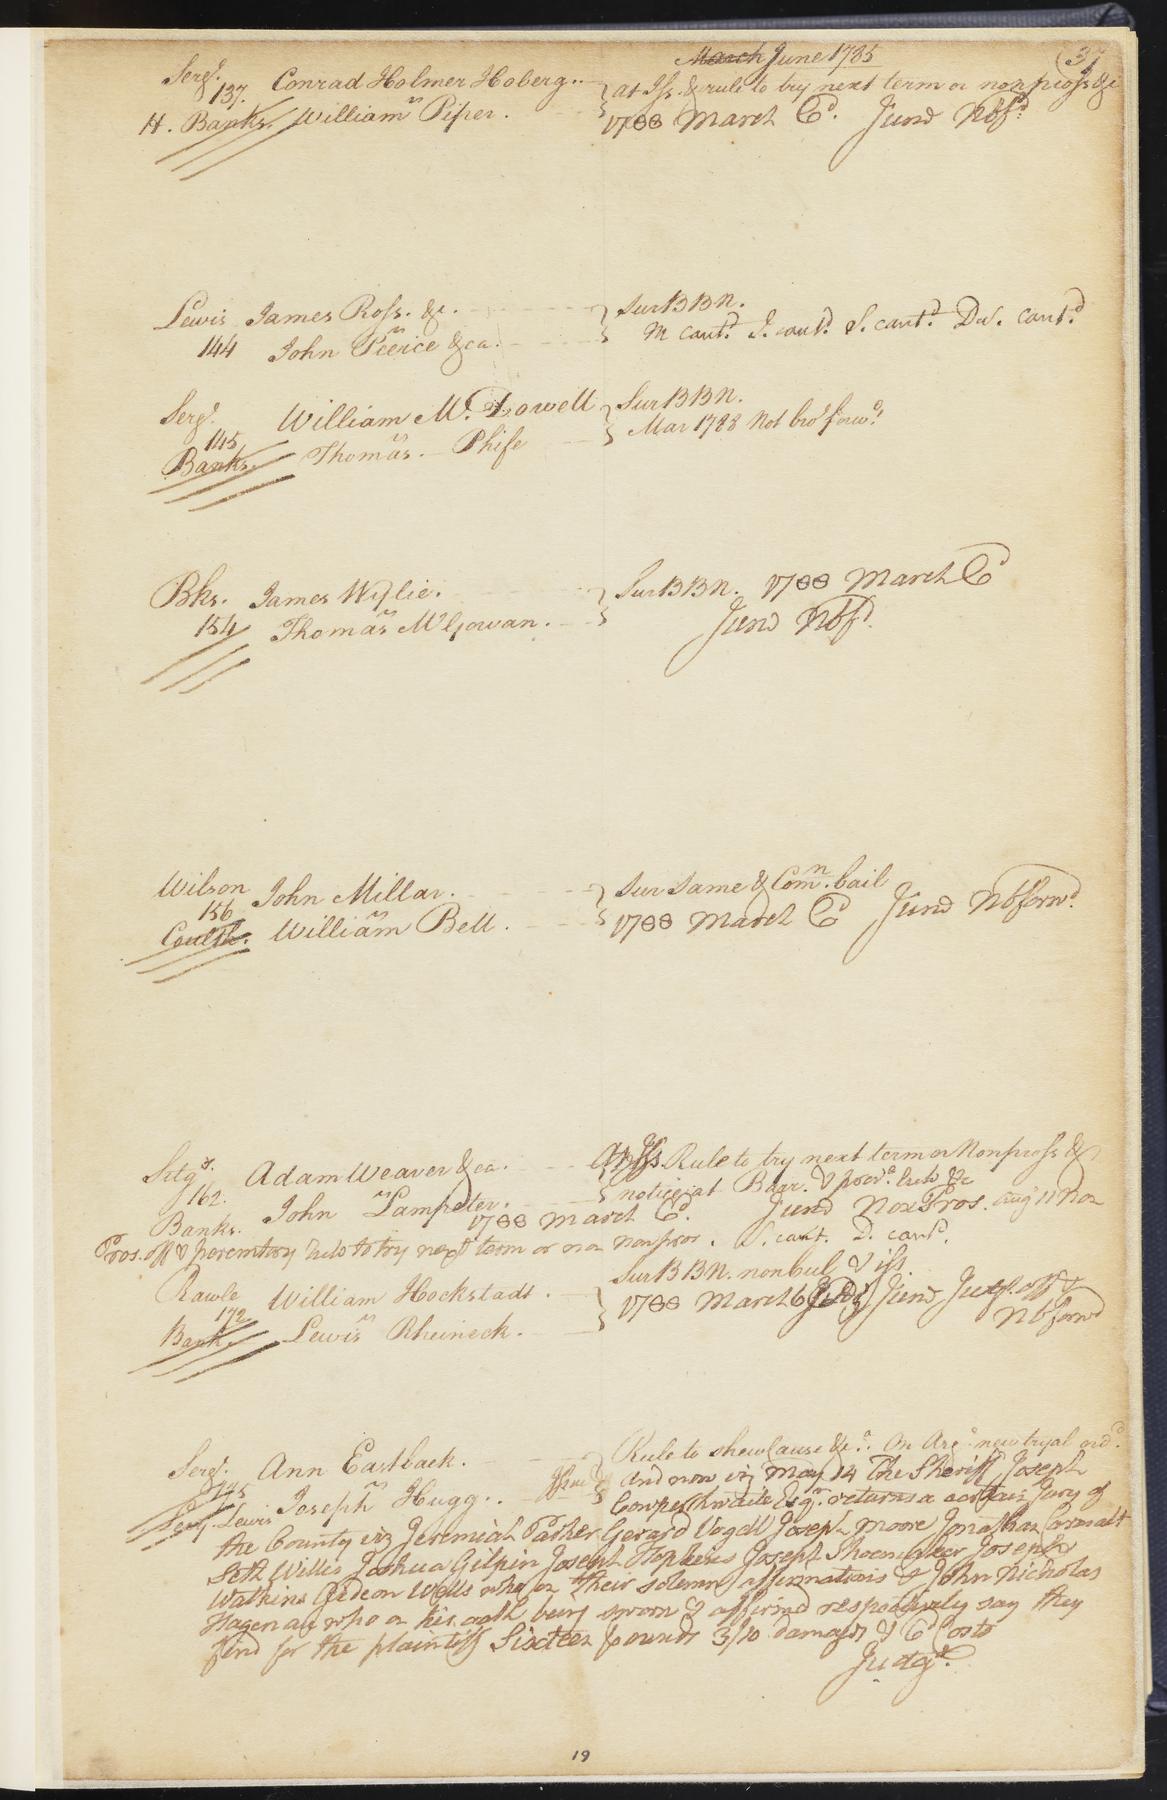 March June 1785
37
Serg.t Conrad Holmer Hoberg
137. at Iss. & rule to try next term or non pross &c
H. Banks. William Piper. 1788 March Cd. Jund Nbfd
Lewis James Ross. &c. Sur BBN.
144 John Peerce &ca. M cont.d J. cont.d S. cont.d De. cont.d
Serg.t William Mc. Dowell Sur BBN.
145 Mar 1788 Not bro.t forw.d
Banks. Thomas Phife
Bks. James Wylie. Sur BBN. 1788 March Cd
154 Thomas McGowan. Jund Nbfd
Wilson John Millar. Sur Same & Comn. bail
156 William Bell. 1788 March Cd Jund Nbforwd
Coulth.
Adam Weaver &ca. At Iss. Rule to try next term or Nonpross &
162. John Lampeter. notice at Baar.
Banks. 1788 March Cd. Jund Non Pros. Aug 11 Non
Pros. off & peremtory rule to try next term or non nonpros. S. cont. D. cont.d
Sur BBN. non bul & iss.
Rawle William Hockstadt. 1788 March
172 Nbforwd
Bank. Lewis Rheineck.
Serg.t Ann Eastback. Rule to shew Cause &c.a. On Arg.t new tryal ord.d
And now viz May 14 The Sheriff Joseph
Lewis Joseph Hugg. Cowperthwaite Esqr. returns a certain Jury of
the County viz Jeremiah Parker Gerard Vogell Joseph Moore Jonathan Carmalt
Seth Willis Joshua Gilpin Joseph Hopkins Joseph Shoemaker Joseph
Watkins Gideon Wells who on their solemn affirmations & John Nicholas
Hagenau who on his oath being sworn & affirmd respectively say they
find for the plaintiff Sixteen pounds 3/10 damages & 6d Costs
Judgt.
19